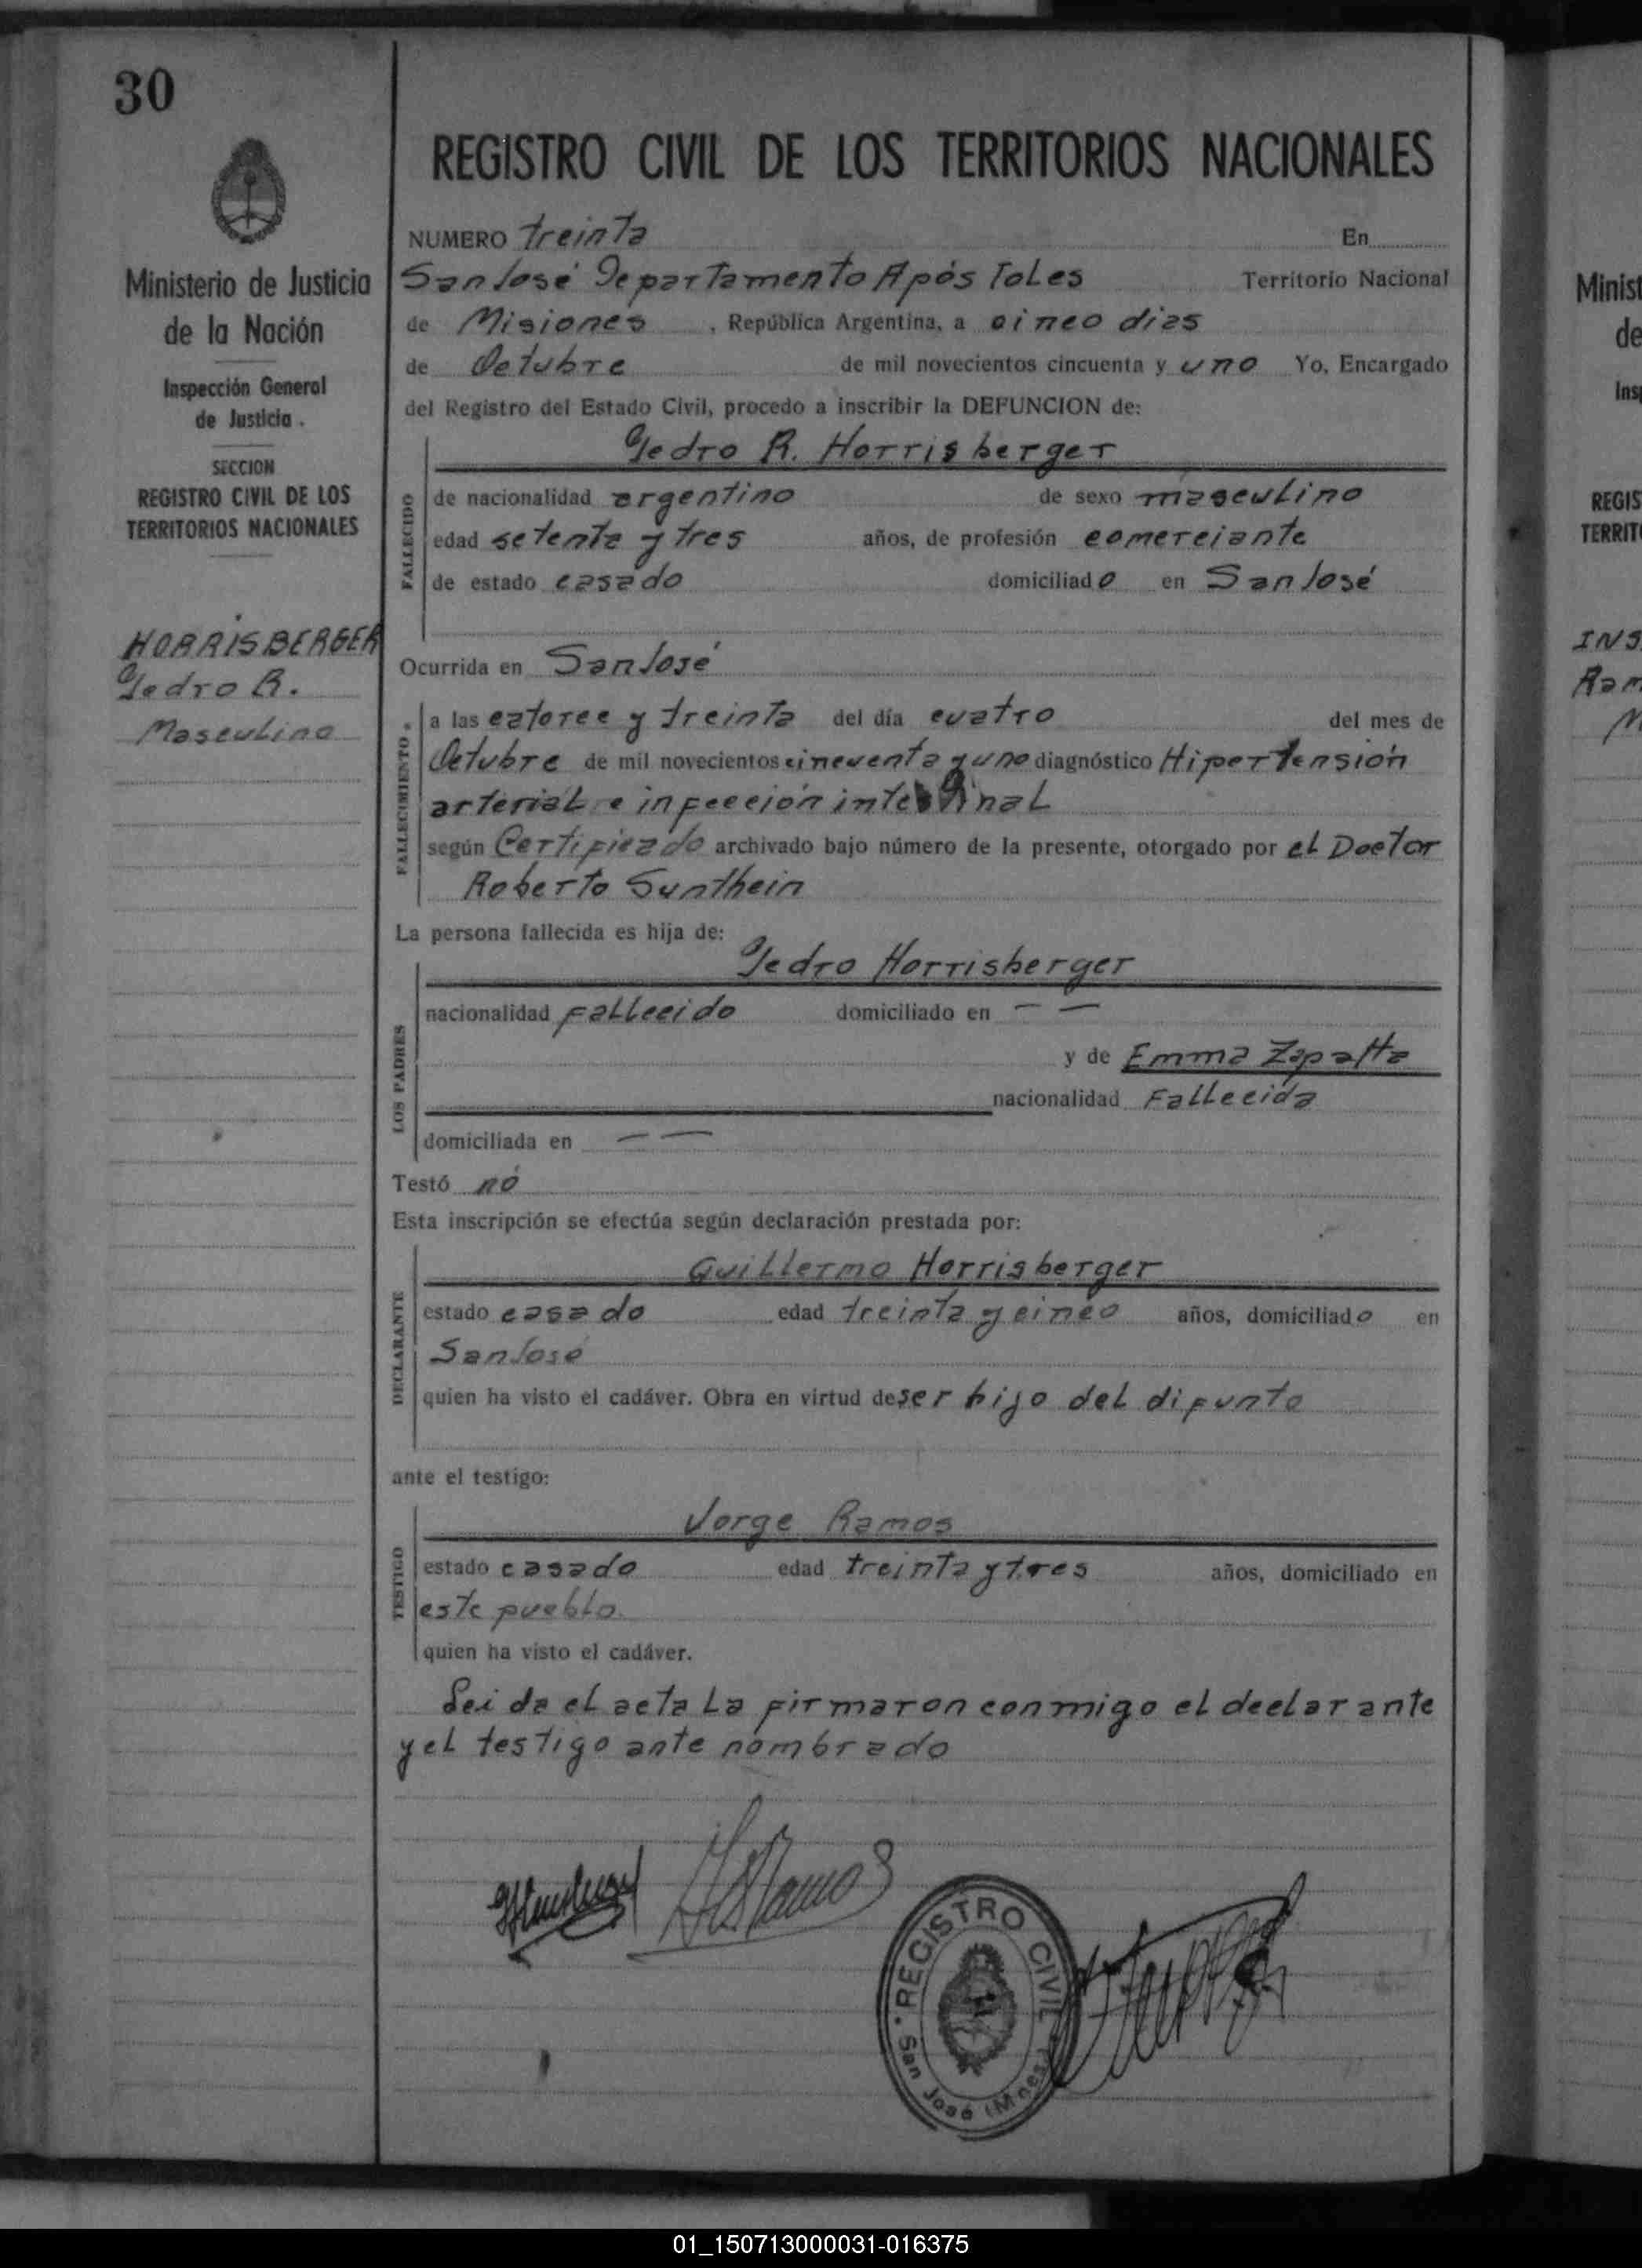 30
REGISTRO CIVIL DE LOS TERRITORIOS NACIONALES
Ministerio de Justicia
de la Nación
Inspección General
de Justicia.
SECCION
REGISTRO CIVIL DE LOS
TERRITORIOS NACIONALES
HORRISBERGER
Pedro R.
Masculino
NUMERO treinta En
San José Departamento Apóstoles Territorio Nacional
de Misiones, República Argentina, a cinco dias
de Octubre de mil novecientos cincuenta y uno Yo, Encargado
del Registro del Estado Civil, procedo a inscribir la DEFUNCION de:
Pedro R. Horrisberger
FALLECIDO
de nacionalidad argentino de sexo masculino
edad setenta y tres años, de profesión comerciante
de estado casado domiciliado en San José
Ocurrida en San José
FALLECIMIENTO
a las catorce y treinta del día cuatro del mes de
Octubre de mil novecientos cincuenta y uno diagnóstico Hipertensión
arterial e infección intestinal
según Certificado archivado bajo número de la presente, otorgado por el Doctor
Roberto Sunthein
La persona fallecida es hija de:
Pedro Horrisberger
LOS PADRES
nacionalidad Fallecido domiciliado en — —
y de Emma Zapatta
nacionalidad Fallecida
domiciliada en — —
Testó nó
Esta inscripción se efectúa según declaración prestada por:
Guillermo Horrisberger
DECLARANTE
estado casado edad treinta y cinco años, domiciliado en
San José
quien ha visto el cadáver. Obra en virtud de ser hijo del difunto
ante el testigo:
Jorge Ramos
TESTIGO
estado casado edad treinta y tres años, domiciliado en
este pueblo
quien ha visto el cadáver.
Leida el acta la firmaron conmigo el declarante
y el testigo ante nombrado
REGISTRO CIVIL
San José (Mnes.)
Minist
de
Ins
REGIS
TERRIT
INS
Ram
M
01_150713000031-016375